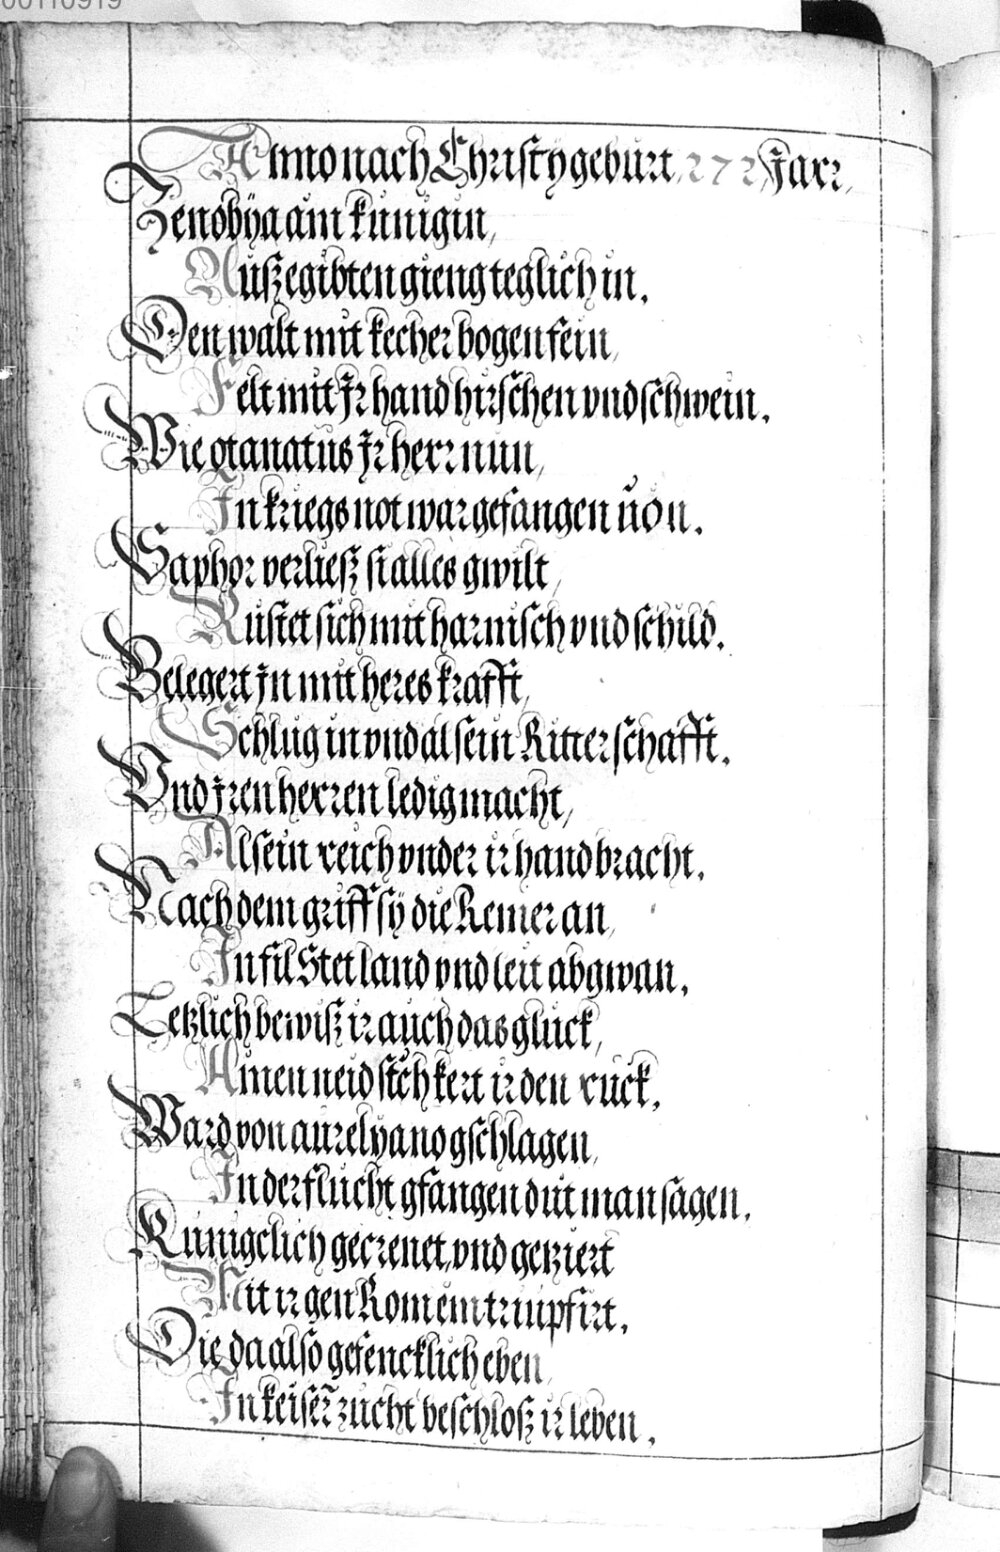 00110919
Anno nach Christy geburt 272 Jarr,
Zenobÿa ain künigin,
Auß egibten gieng teglich in.
Den walt mit kecher bogen fein,
Felt mit Jr hand hirschen vnd schwein.
Wie otanatus Jr herr nun,
In kriegs not war gefangen von.
Saphor verließ si alles gwilt,
Rüstet sich mit harnisch vnd schild.
Belegert jn mit heres krafft,
Schlug in vnd al sein Ritterschafft.
Vnd jren herren ledig macht,
Al sein reich vnder ir hand bracht.
Nach dem griff sÿ die Remer an,
In fil Stet land vnd leit abgwan.
Letzlich bewiß ir auch das glück,
Ainen neid sich kert ir den rück.
Ward von aurelyano gschlagen,
In der flucht gfangen dut man sagen.
Künigclich gecrenet, vnd geziert
Mit ir gen Rom ein triupfirt.
Die da also gefencklich eben
In keiserzucht beschloß ir leben.